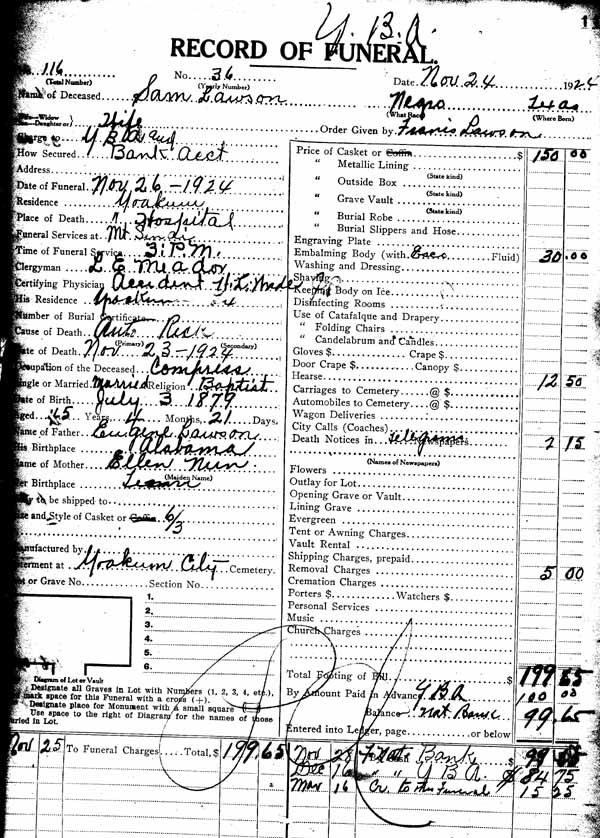 Y. B. A.
1
RECORD OF FUNERAL.
No. 116 (Total Number) No. 36 (Yearly Number) Date Nov 24 1924
Name of Deceased Sam Lawson Negro (What Race) Texas (Where Born)
Wife
Order Given by Francis Lawson
Charge to Y B A and
How Secured Bank Acct
Address
Date of Funeral Nov 26-1924
Residence Yoakum
Place of Death " Hospital
Funeral Services at Mt
Time of Funeral Service 3. P.M.
Clergyman L. E. Meador
Certifying Physician Accident
His Residence Yoakum
Number of Burial Certificate
Cause of Death Auto (Primary) (Secondary)
Date of Death Nov. 23-1924
Occupation of the Deceased Compress
Single or Married Married Religion Baptist
Date of Birth July 3 1879
Aged 45 Years, 4 Months, 21 Days.
Name of Father Eugene Lawson
His Birthplace Alabama
Name of Mother Ellen (Maiden Name)
Her Birthplace
Body to be shipped to
Size and Style of Casket or Coffin 6/3
Manufactured by
Interment at Yoakum City Cemetery.
Lot or Grave No. Section No.
1.
2.
3.
4.
5.
6.
Diagram of Lot or Vault
Designate all Graves in Lot with Numbers (1, 2, 3, 4, etc.),
mark space for this Funeral with a cross (+).
Designate place for Monument with a small square
Use space to the right of Diagram for the names of those
buried in Lot.
Price of Casket or Coffin $ 150 00
" Metallic Lining
(State kind)
" Outside Box
(State kind)
" Grave Vault
(State kind)
" Burial Robe
" Burial Slippers and Hose
Engraving Plate
Embalming Body (with Fluid) 30.00
Washing and Dressing
Shaving
Keeping Body on Ice
Disinfecting Rooms
Use of Catafalque and Drapery
" Folding Chairs
" Candelabrum and Candles
Gloves $ Crape $
Door Crape $ Canopy $
Hearse 12 50
Carriages to Cemetery @ $
Automobiles to Cemetery @ $
Wagon Deliveries
City Calls (Coaches)
Death Notices in Newspapers telegrams 2 15
(Names of Newspapers)
Flowers
Outlay for Lot
Opening Grave or Vault
Lining Grave
Evergreen
Tent or Awning Charges
Vault Rental
Shipping Charges, prepaid
Removal Charges 5 00
Cremation Charges
Porters $ Watchers $
Personal Services
Music
Church Charges
Total Footing of Bill $ 199 65
By Amount Paid in Advance Y. B. A 100 00
Balance Nat Bank 99 65
Entered into Ledger, page or below
Nov 25 To Funeral Charges Total, $ 199.65
Nov 28 Nat Bank 99
Dec 16 " " Y B A. $ 84 75
Mar 16 Cr. to the Funeral 15 25